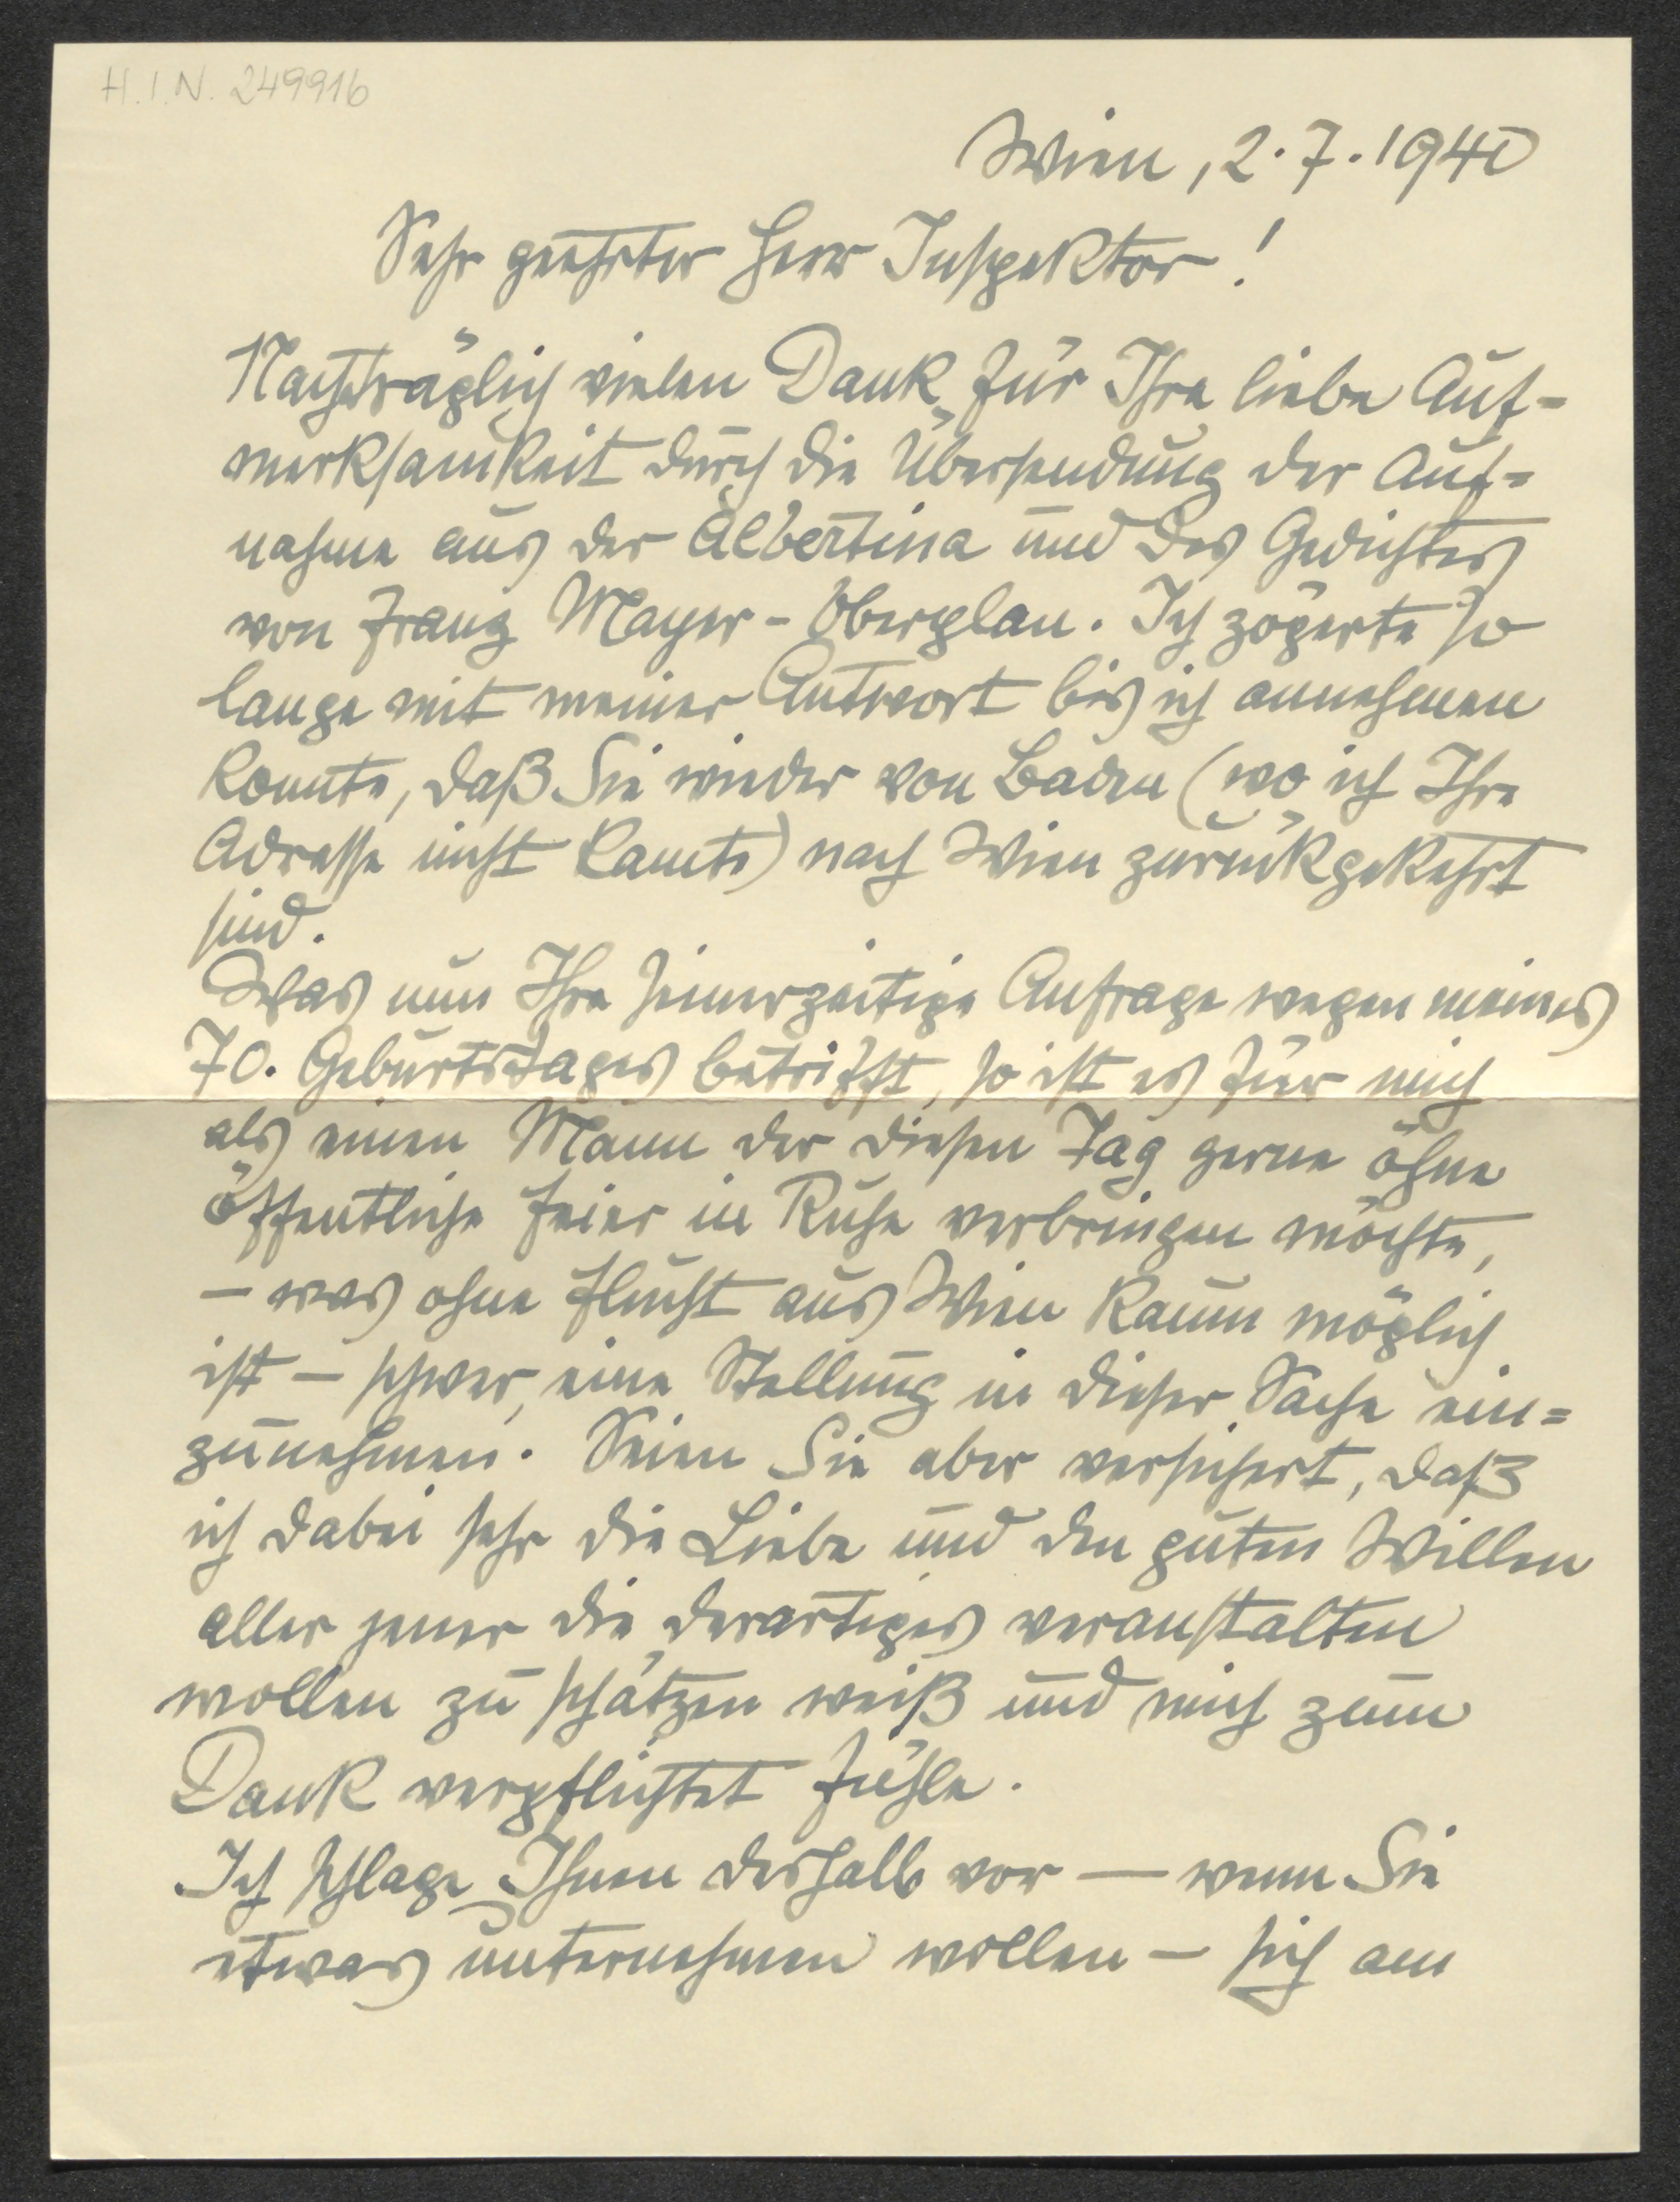 H.I.N. 249916
Wien, 2.7.1940
Sehr geehrter Herr Inspektor!
Nachträglich vielen Dank für Ihre liebe Auf-
merksamkeit durch die Übersendung der Auf=
nahme aus der Albertina und des Gedichtes
von Franz Mayer-Oberplan. Ich zögerte so
lange mit meiner Antwort bis ich annehmen
konnte, daß Sie wieder von Baden (wo ich Ihre
Adresse nicht kannte) nach Wien zurückgekehrt
sind.
Was nun Ihre seinerzeitige Anfrage wegen meines
70. Geburtstages betrifft, so ist es für mich
als einen Mann der diesen Tag gerne ohne
öffentliche Feier in Ruhe verbringen möchte,
– was ohne Flucht aus Wien kaum möglich
ist – schwer, eine Stellung in dieser Sache ein=
zunehmen. Seien Sie aber versichert, daß
ich dabei sehr die Liebe und den guten Willen
aller jener die derartiges veranstalten
wollen zu schätzen weiß und mich zum
Dank verpflichtet fühle.
Ich schlage Ihnen deshalb vor — wenn Sie
etwas unternehmen wollen – sich am